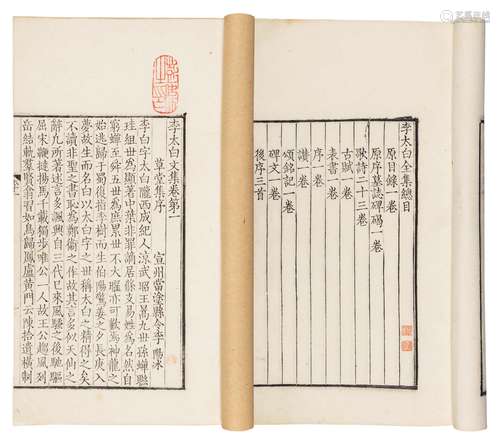 李太白全集總目
原目錄一卷
原序墓誌碑碣一卷
歌詩二十三卷
古賦一卷
表書一卷
序一卷
讚一卷
頌銘記一卷
碑文一卷
後序三首
李太白文集卷第一
草堂集序 宣州當塗縣令李陽冰
李白字太白隴西成紀人涼武昭王暠九世孫蟬聯
珪組世為顯著中葉非罪謫居條支易姓為名然自
窮蟬至舜五世為庶累世不大曜亦可歎焉神龍之
始逃歸于蜀復指李樹而生伯陽驚姜之夕長庚入
夢故生而名白以太白字之世稱太白之精得之矣
不讀非聖之書恥為鄭衛之作故其言多似天仙之
辭凡所著述言多諷興自三代已來風騷之後馳驅
屈宋鞭撻揚馬千載獨步唯公一人故王公趨風列
岳結軌羣賢翕習如鳥歸鳳盧黃門云陳拾遺橫制